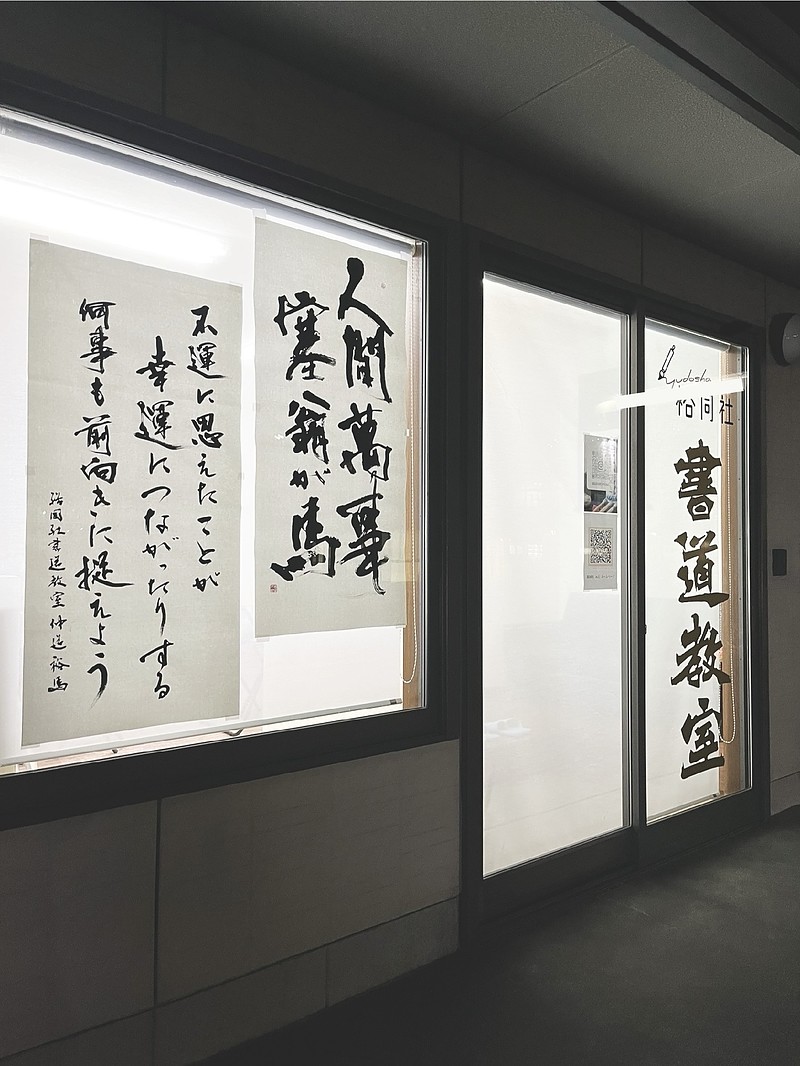 人間萬事
塞翁が馬
不運に思えたことが
幸運につながったりする
何事も前向きに捉えよう
裕同社書道教室
Yudosha
裕同社
書道教室